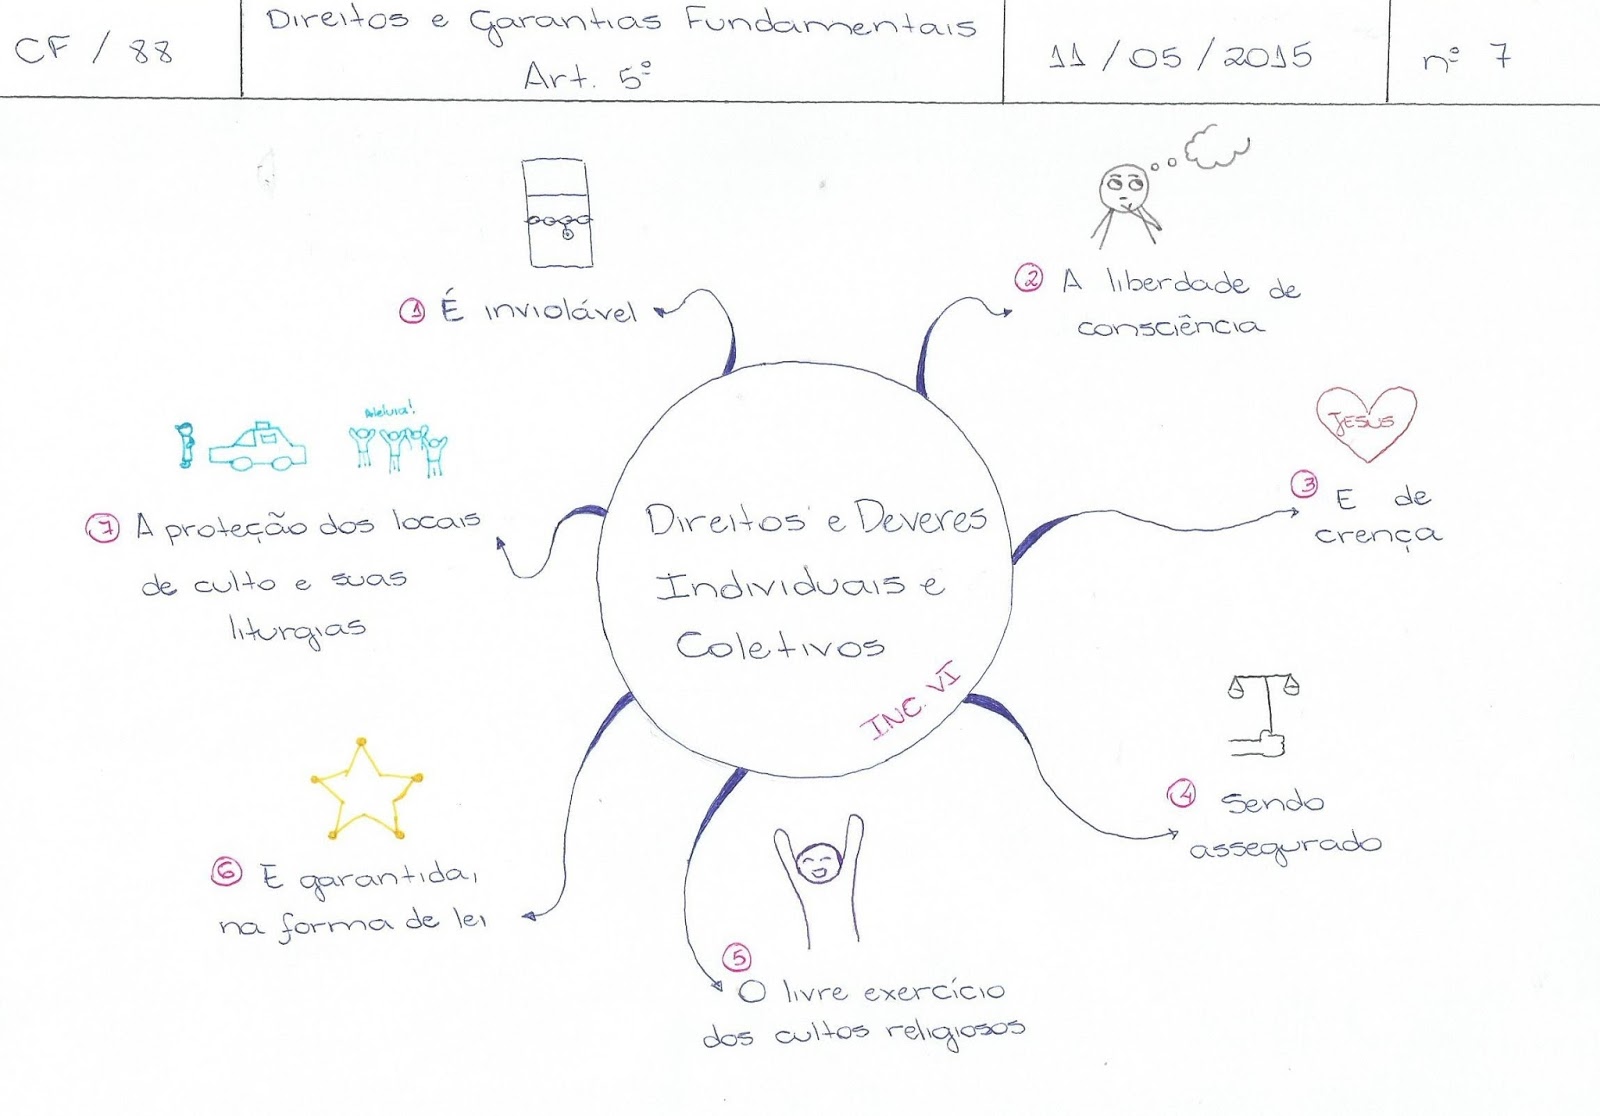 CF / 88
Direitos e Garantias Fundamentais
Art. 5º
11 / 05 / 2015
nº 7
1 É inviolável
2 A liberdade de
consciência
JESUS
3 E de
crença
4 Sendo
assegurado
5
O livre exercício
dos cultos religiosos
6 E garantida,
na forma de lei
Aleluia!
7 A proteção dos locais
de culto e suas
liturgias
Direitos e Deveres
Individuais e
Coletivos
INC. VI